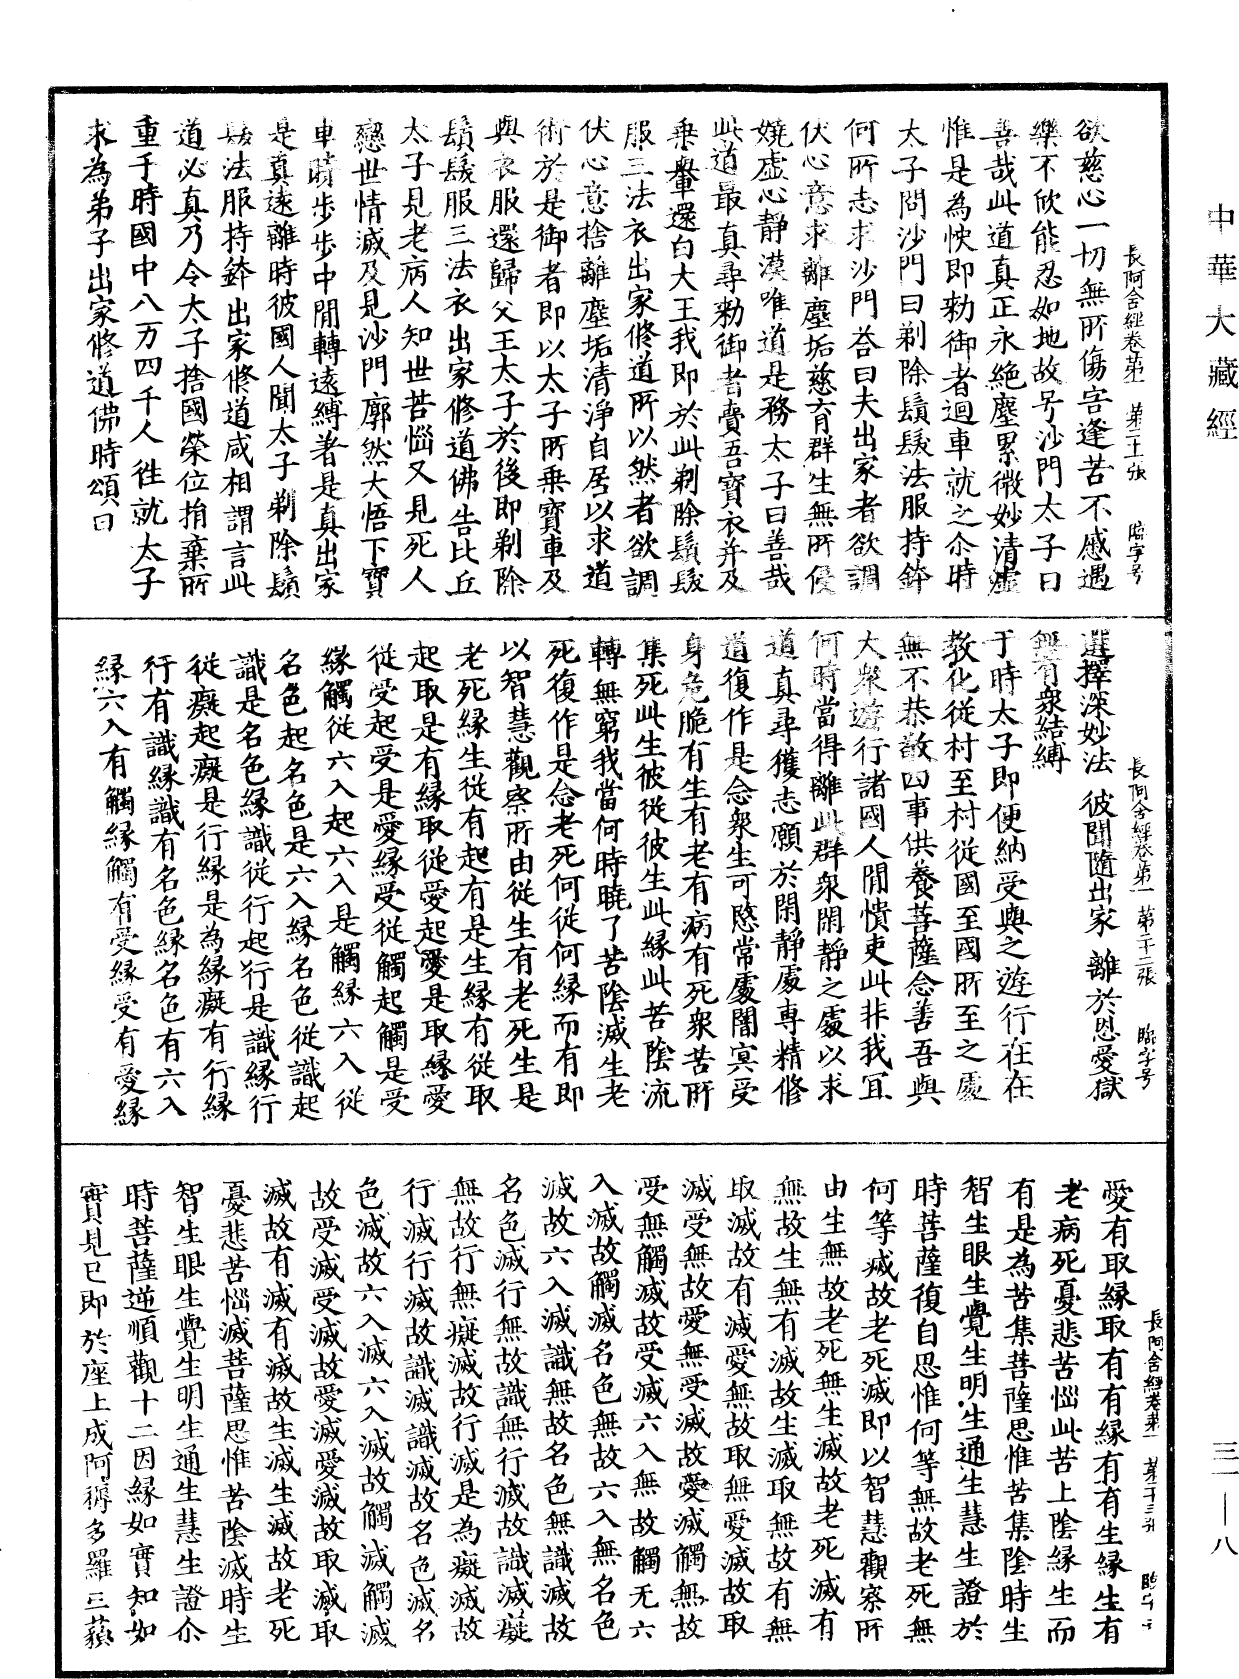 中華大藏經
長阿含經卷第一 第二十一張 臨字号
欲慈心一切無所傷害逢苦不慼遇
樂不欣能忍如地故号沙門太子曰
善哉此道真正永絕塵累微妙清虛
惟是為快即勑御者迴車就之尒時
太子問沙門曰剃除鬚髮法服持鉢
何所志求沙門荅曰夫出家者欲調
伏心意求離塵垢慈育群生無所侵
嬈虛心靜漠唯道是務太子曰善哉
此道最真尋勑御者賷吾寶衣并及
乘轝還白大王我即於此剃除鬚髮
服三法衣出家修道所以然者欲調
伏心意捨離塵垢清淨自居以求道
術於是御者即以太子所乘寶車及
與衣服還歸父王太子於後即剃除
鬚髮服三法衣出家修道佛告比丘
太子見老病人知世苦惱又見死人
戀世情滅及見沙門廓然大悟下寶
車時步步中間轉遠縛著是真出家
是真遠離時彼國人聞太子剃除鬚
髮法服持鉢出家修道咸相謂言此
道必真乃令太子捨國榮位捐棄所
重于時國中八万四千人往就太子
求為弟子出家修道佛時頌曰
長阿含經卷第一 第二十二張 臨字号
選擇深妙法 彼聞隨出家 離於恩愛獄
無有衆結縛
于時太子即便納受與之遊行在在
教化從村至村從國至國所至之處
無不恭敬四事供養菩薩念善吾與
大衆遊行諸國人閒憒吏此非我冝
何時當得離此群衆閑靜之處以求
道真尋獲志願於閑靜處專精修
道復作是念衆生可愍常處闇冥受
身危脆有生有老有病有死衆苦所
集死此生彼從彼生此緣此苦陰流
轉無窮我當何時曉了苦陰滅生老
死復作是念老死何從何緣而有即
以智慧觀察所由從生有老死生是
老死緣生從有起有是生緣有從取
起取是有緣取從愛起愛是取緣愛
從受起受是愛緣受從觸起觸是受
緣觸從六入起六入是觸緣六入從
名色起名色是六入緣名色從識起
識是名色緣識從行起行是識緣行
從癡起癡是行緣是為緣癡有行緣
行有識緣識有名色緣名色有六入
緣六入有觸緣觸有受緣受有愛緣
長阿含經卷第一 第二十三張 臨字号
愛有取緣取有有緣有有生緣生有
老病死憂悲苦惱此苦上陰緣生而
有是為苦集菩薩思惟苦集陰時生
智生眼生覺生明生通生慧生證於
時菩薩復自思惟何等無故老死無
何等滅故老死滅即以智慧觀察所
由生無故老死無生滅故老死滅有
無故生無有滅故生滅取無故有無
取滅故有滅愛無故取無愛滅故取
滅受無故愛無受滅故愛滅觸無故
受無觸滅故受滅六入無故觸无六
入滅故觸滅名色無故六入無名色
滅故六入滅識無故名色無識滅故
名色滅行無故識無行滅故識滅癡
無故行無癡滅故行滅是為癡滅故
行滅行滅故識滅識滅故名色滅名
色滅故六入滅六入滅故觸滅觸滅
故受滅受滅故愛滅愛滅故取滅取
滅故有滅有滅故生滅生滅故老死
憂悲苦惱滅菩薩思惟苦陰滅時生
智生眼生覺生明生通生慧生證尒
時菩薩逆順觀十二因緣如實知如
實見已即於座上成阿耨多羅三藐
三一—八